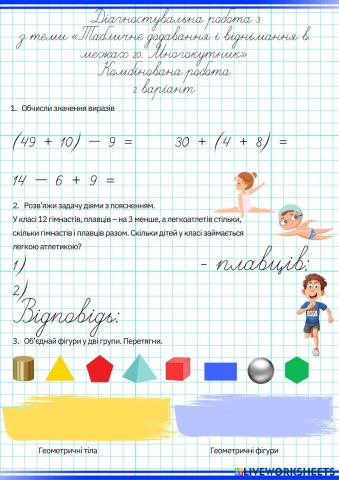 Діагностувальна робота 3
з теми «Табличне додавання і віднімання в
межах 20. Многокутник»
Комбінована робота
2 варіант
1. Обчисли значення виразів
(49 + 10) — 9 = 30 + (4 + 8) =
14 — 6 + 9 =
2. Розв'яжи задачу діями з поясненням.
У класі 12 гімнастів, плавців – на 3 менше, а легкоатлетів стільки,
скільки гімнастів і плавців разом. Скільки дітей у класі займається
легкою атлетикою?
1) - плавців;
2)
Відповідь:
3. Об'єднай фігури у дві групи. Перетягни.
Геометричні тіла Геометричні фігури
LIVEWORKSHEETS